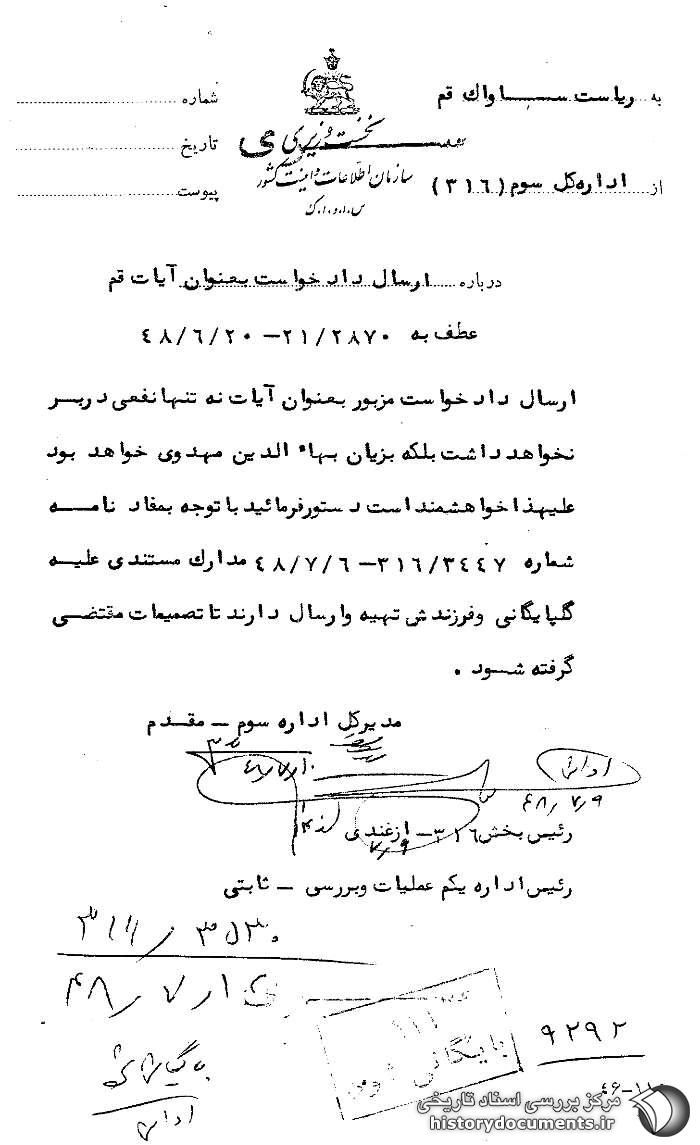 به ریاست ســـاواک قم
شماره
نخست وزیری
تاریخ
سازمان اطلاعات و امنیت کشور
از اداره کل سوم (۳۱۶)
پیوست
س.ا.و.ا.ک
درباره ارسال دادخواست بعنوان آیات قم
عطف به ۲۱/۲۸۷۰-۴۸/۶/۲۰
ارسال دادخواست مزبور بعنوان آیات نه تنها نفعی دربر
نخواهد داشت بلکه بزیان بهاء الدین مهدوی خواهد بود
علیهذا خواهشمند است دستور فرمائید با توجه بمفاد نامه
شماره ۳۱۶/۳۴۴۷-۴۸/۷/۶ مدارک مستندی علیه
گلپایگانی و فرزندش تهیه و ارسال دارند تا تصمیمات مقتضی
گرفته شود.
مدیرکل اداره سوم - مقدم
۴۸/۷/۹
رئیس بخش ۳۱۶- ازغندی
۷/۹
رئیس اداره یکم عملیات وبررسی - ثابتی
۳۵۳۰ / ۳۱۶
۴۸/۷/۱۲
بایگانی شود
۹۲۹۲
مرکز بررسی اسناد تاریخی
historydocuments.ir